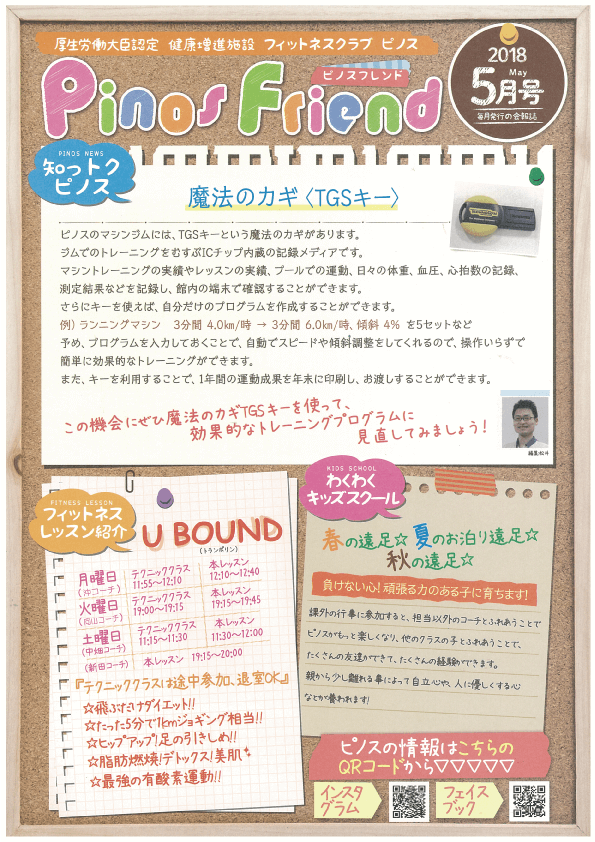 厚生労働大臣認定 健康増進施設 フィットネスクラブ ピノス
Pinos Friend
ピノスフレンド
2018
May
5月号
毎月発行の会報誌
PINOS NEWS
知っトク
ピノス
魔法のカギ〈TGSキー〉
ピノスのマシンジムには、TGSキーという魔法のカギがあります。
ジムでのトレーニングをむすぶICチップ内蔵の記録メディアです。
マシントレーニングの実績やレッスンの実績、プールでの運動、日々の体重、血圧、心拍数の記録、
測定結果などを記録し、館内の端末で確認することができます。
さらにキーを使えば、自分だけのプログラムを作成することができます。
例) ランニングマシン 3分間 4.0km/時 → 3分間 6.0km/時、傾斜 4% を5セットなど
予め、プログラムを入力しておくことで、自動でスピードや傾斜調整をしてくれるので、操作いらずで
簡単に効果的なトレーニングができます。
また、キーを利用することで、1年間の運動成果を年末に印刷し、お渡しすることができます。
この機会にぜひ魔法のカギTGSキーを使って、
効果的なトレーニングプログラムに
見直してみましょう!
編集:松井
FITNESS LESSON
フィットネス
レッスン紹介
U BOUND
(トランポリン)
月曜日 テクニッククラス 本レッスン
(沖コーチ) 11:55~12:10 12:10~12:40
火曜日 テクニッククラス 本レッスン
(内山コーチ) 19:00~19:15 19:15~19:45
土曜日 テクニッククラス 本レッスン
(中畑コーチ) 11:15~11:30 11:30~12:00
(新田コーチ) 本レッスン 19:15~20:00
『テクニッククラスは途中参加、退室OK』
☆飛ぶだけダイエット!!
☆たった5分で1kmジョギング相当!!
☆ヒップアップ!足の引きしめ!!
☆脂肪燃焼!デトックス!美肌
☆最強の有酸素運動!!
KIDS SCHOOL
わくわく
キッズスクール
春の遠足☆ 夏のお泊り遠足☆
秋の遠足☆
負けない心!頑張る力のある子に育ちます!
課外の行事に参加すると、担当以外のコーチとふれあうことで
ピノスがもっと楽しくなり、他のクラスの子とふれあうことで、
たくさんの友達ができて、たくさんの経験ができます。
親から少し離れる事によって自立心や、人に優しくする心
などが養われます!
ピノスの情報はこちらの
QRコードから▽▽▽▽▽
インスタ
グラム
フェイス
ブック